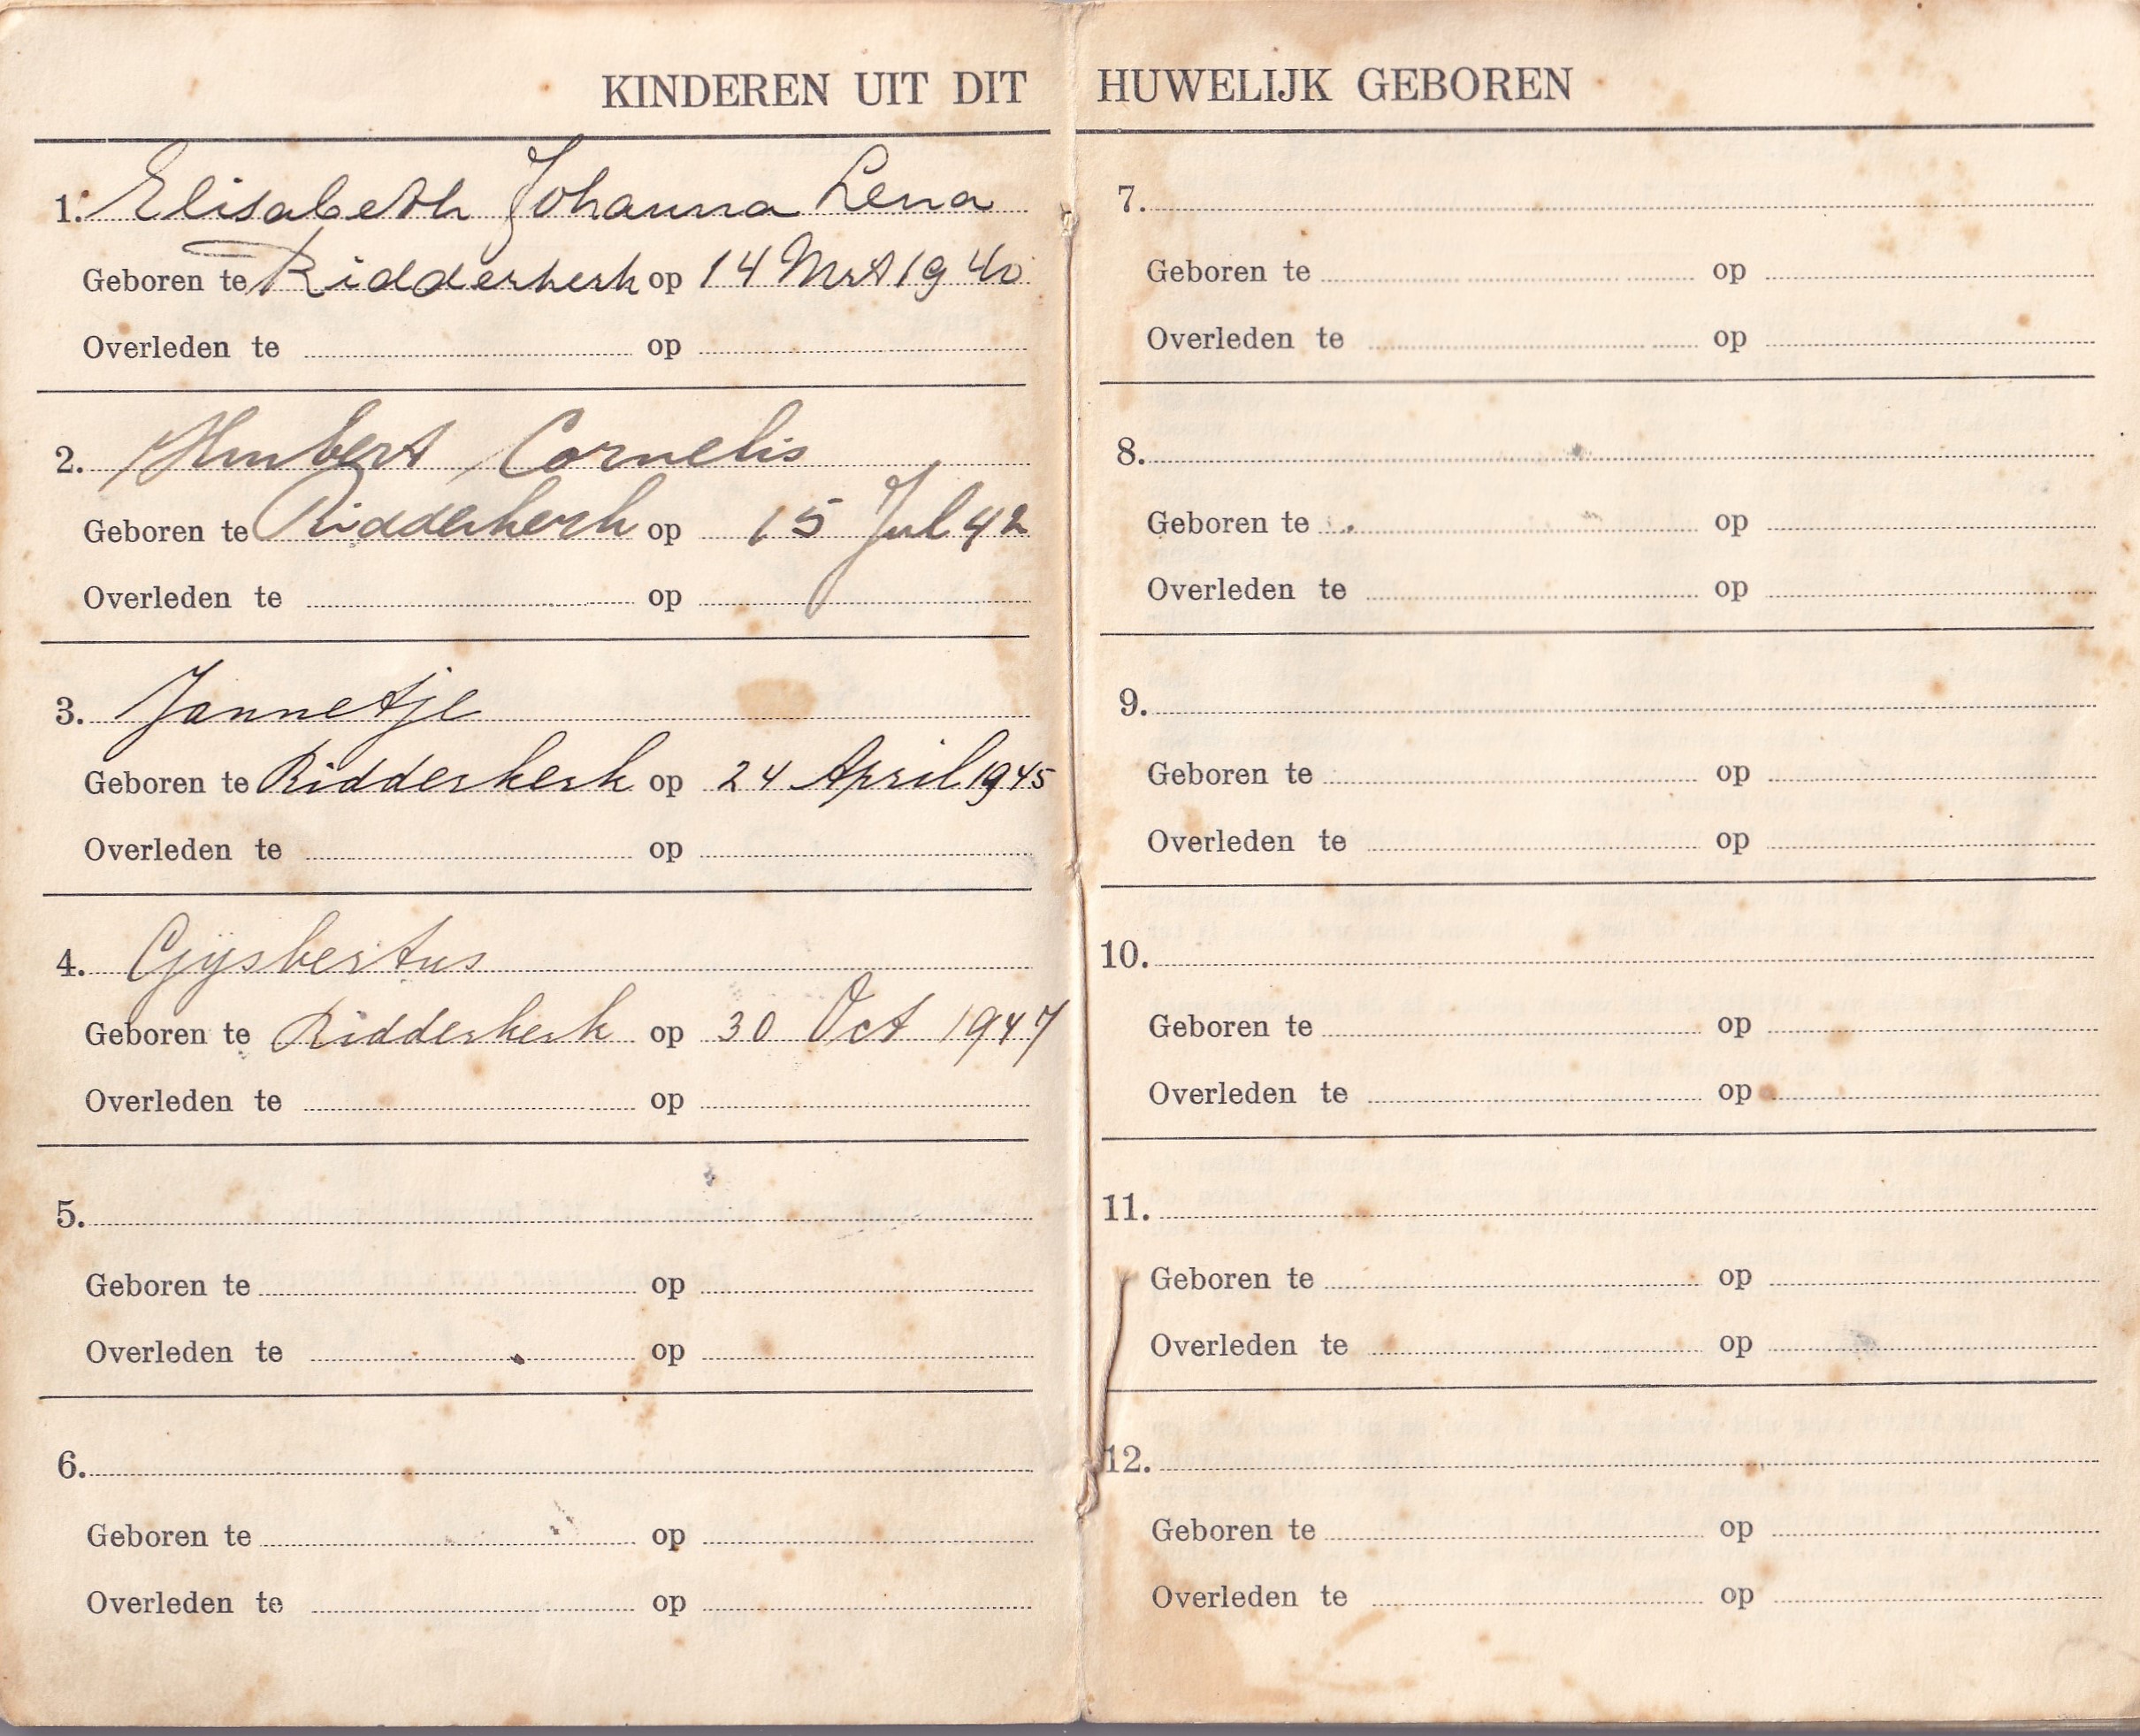 KINDEREN UIT DIT HUWELIJK GEBOREN
1. Elisabeth Johanna Lena
Geboren te Ridderkerk op 14 Mrt 1940
Overleden te op
2. Huubert Cornelis
Geboren te Ridderkerk op 15 Jul 42
Overleden te op
3. Jannetje
Geboren te Ridderkerk op 24 April 1945
Overleden te op
4. Gijsbertus
Geboren te Ridderkerk op 30 Oct 1947
Overleden te op
5.
Geboren te op
Overleden te op
6.
Geboren te op
Overleden te op
7.
Geboren te op
Overleden te op
8.
Geboren te op
Overleden te op
9.
Geboren te op
Overleden te op
10.
Geboren te op
Overleden te op
11.
Geboren te op
Overleden te op
12.
Geboren te op
Overleden te op